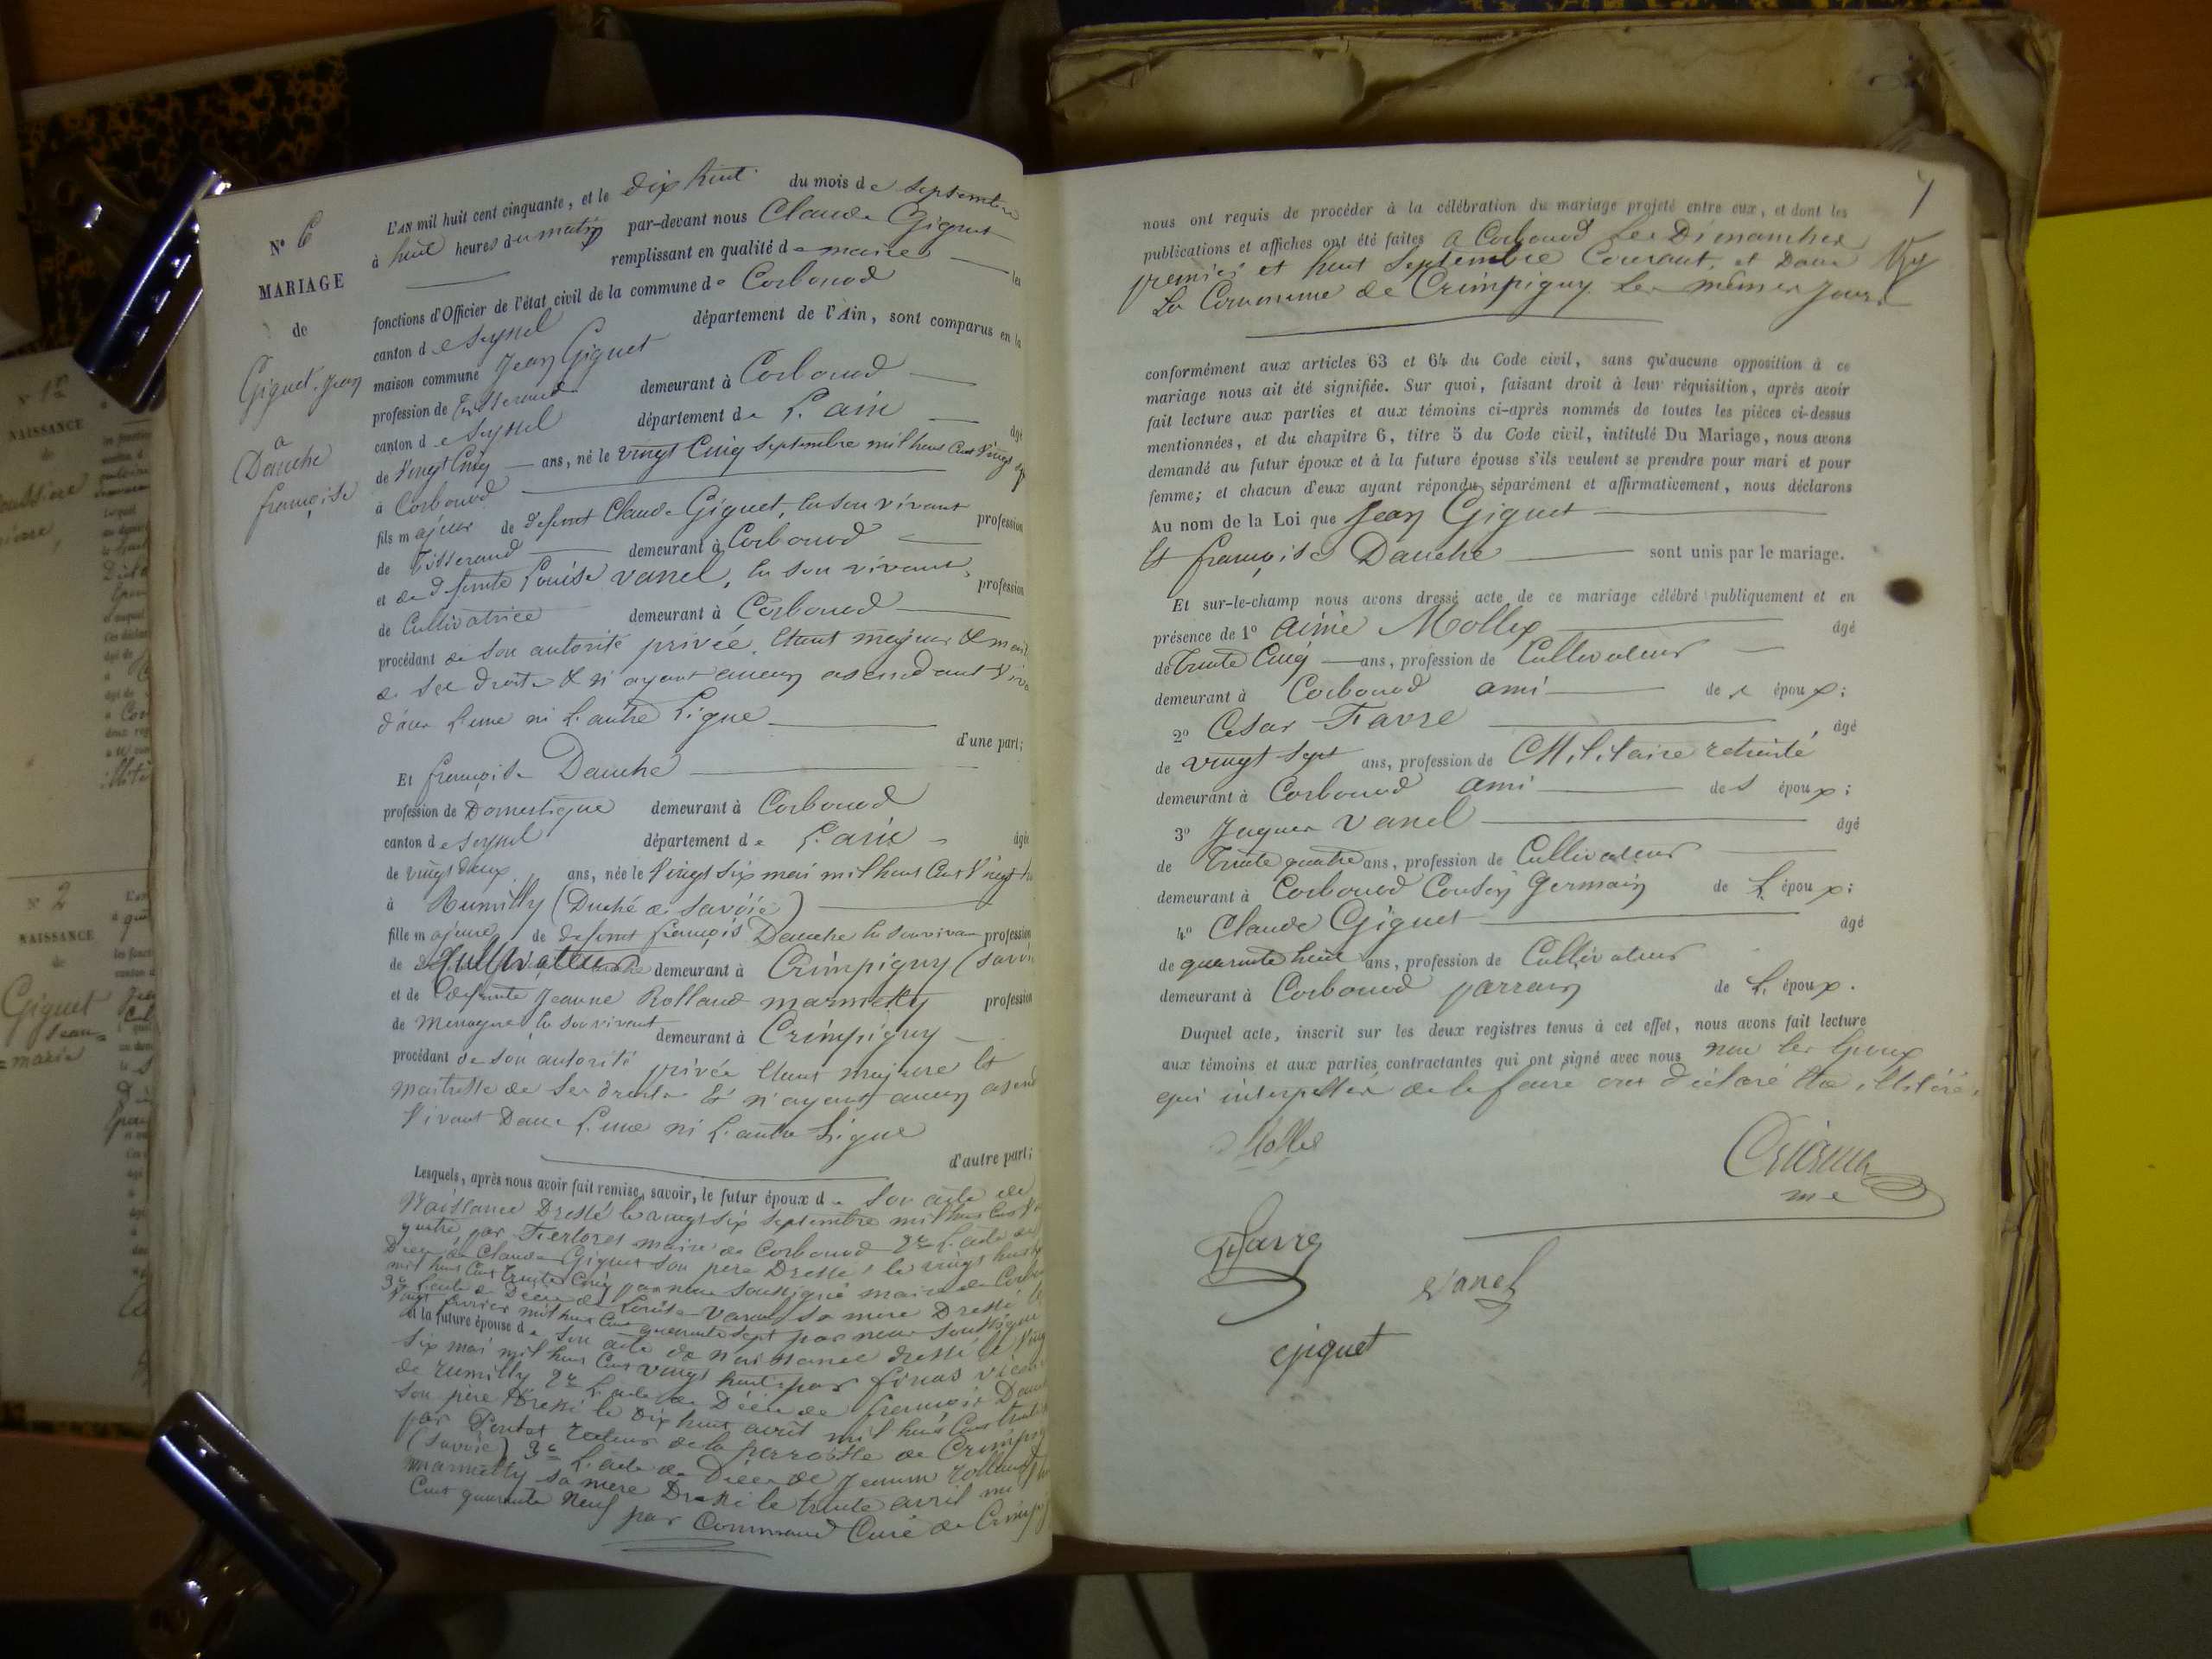 N° 6
MARIAGE
de
Giguet Jean
a
Dauche
françoise
L'AN mil huit cent cinquante, et le dix huit du mois de septembre
à huit heures du matin par-devant nous Claude Giguet
remplissant en qualité de maire les
fonctions d'Officier de l'état civil de la commune de Corbonod
canton de Seyssel département de l'Ain, sont comparus en la
maison commune Jean Giguet
profession de Tisserand demeurant à Corbonod
canton de Seyssel département de L'ain âgé
de Vingt Cinq ans, né le vingt Cinq septembre mil huit Cent Vingt
à Corbonod
fils majeur de défunt Claude Giguet, en son vivant profession
de Tisserand demeurant à Corbonod
et de défunte Louise Vanel, en son vivant, profession
de Cultivatrice demeurant à Corbonod
procédant de son autorité privée, étant majeur &
de ses droits & n'ayant aucun asendant
dans L'une ni L'autre Ligne
d'une part;
Et françoise Dauche
profession de Domestique demeurant à Corbonod
canton de Seyssel département de L'ain âgée
de vingt deux ans, née le Vingt six mai mil huit Cent Vingt
à Rumilly (Duché de Savoie)
fille majeure de défunt françois Dauche en son vivan profession
de Cultivateur demeurant à Crimpigny (Savoi
et de défunte Jeanne Rolland marmetty profession
de Menagere en son vivant demeurant à Crimpigny
procédant de son autorité privée étant majeure et
maitresse de ses droits & n'ayant aucun asend
Vivant Dans L'une ni L'autre Ligne
d'autre part;
Lesquels, après nous avoir fait remise, savoir, le futur époux de son acte de
Naissance Dressé le vingt six septembre mil huit Cent
quatre, par maire de Corbonod 2e L'acte de
Décès de Claude Giguet son père Dressé le vingt
mil huit Cent trente Cinq par nous soussigné maire de Corbo
3e L'acte de Décès de Louise Vanel sa mère Dressé le
Vingt fevrier mil huit Cent quarante sept par nous soussigné
et la future épouse de son acte de naissance dressé le Ving
six mai mil huit Cent vingt huit par vicai
de rumilly 2e L'acte de Décès de françois Dau
son père Dressé le Dix huit avril mil huit Cent
par recteur de la parroisse de Crimpi
(Savoie) 3e L'acte de Décès de Jeanne rolland
marmetty sa mère Dressé le trente avril mil
Cent quarante Neuf par Curé de Crimp
7
nous ont requis de procéder à la célébration du mariage projeté entre eux, et dont les
publications et affiches ont été faites a Corbonod les Dimanches
premier et huit Septembre Courant, et Dans
La Commune de Crimpigny les mêmes jours
conformément aux articles 63 et 64 du Code civil, sans qu'aucune opposition à ce
mariage nous ait été signifiée. Sur quoi, faisant droit à leur réquisition, après avoir
fait lecture aux parties et aux témoins ci-après nommés de toutes les pièces ci-dessus
mentionnées, et du chapitre 6, titre 5 du Code civil, intitulé Du Mariage, nous avons
demandé au futur époux et à la future épouse s'ils veulent se prendre pour mari et pour
femme; et chacun d'eux ayant répondu séparément et affirmativement, nous déclarons
Au nom de la Loi que Jean Giguet
Et françoise Dauche sont unis par le mariage.
Et sur-le-champ nous avons dressé acte de ce mariage célébré publiquement et en
présence de 1° aimé Mollex âgé
de Trente Cinq ans, profession de Cultivateur
demeurant à Corbonod ami de époux;
2° César Favre âgé
de vingt sept ans, profession de Militaire retraité
demeurant à Corbonod ami des époux;
3° Jaques Vanel âgé
de Trente quatre ans, profession de Cultivateur
demeurant à Corbonod Cousin Germain de L'époux;
4° Claude Giguet âgé
de quarante huit ans, profession de Cultivateur
demeurant à Corbonod parrain de L'époux.
Duquel acte, inscrit sur les deux registres tenus à cet effet, nous avons fait lecture
aux témoins et aux parties contractantes qui ont signé avec nous non les époux
qui interpellés de le faire ont déclaré être illitérés
Mollex
Favre
Vanel
Giguet
N° 1er
NAISSANCE
de
N° 2
NAISSANCE
de
Giguet
Jean=
=marie